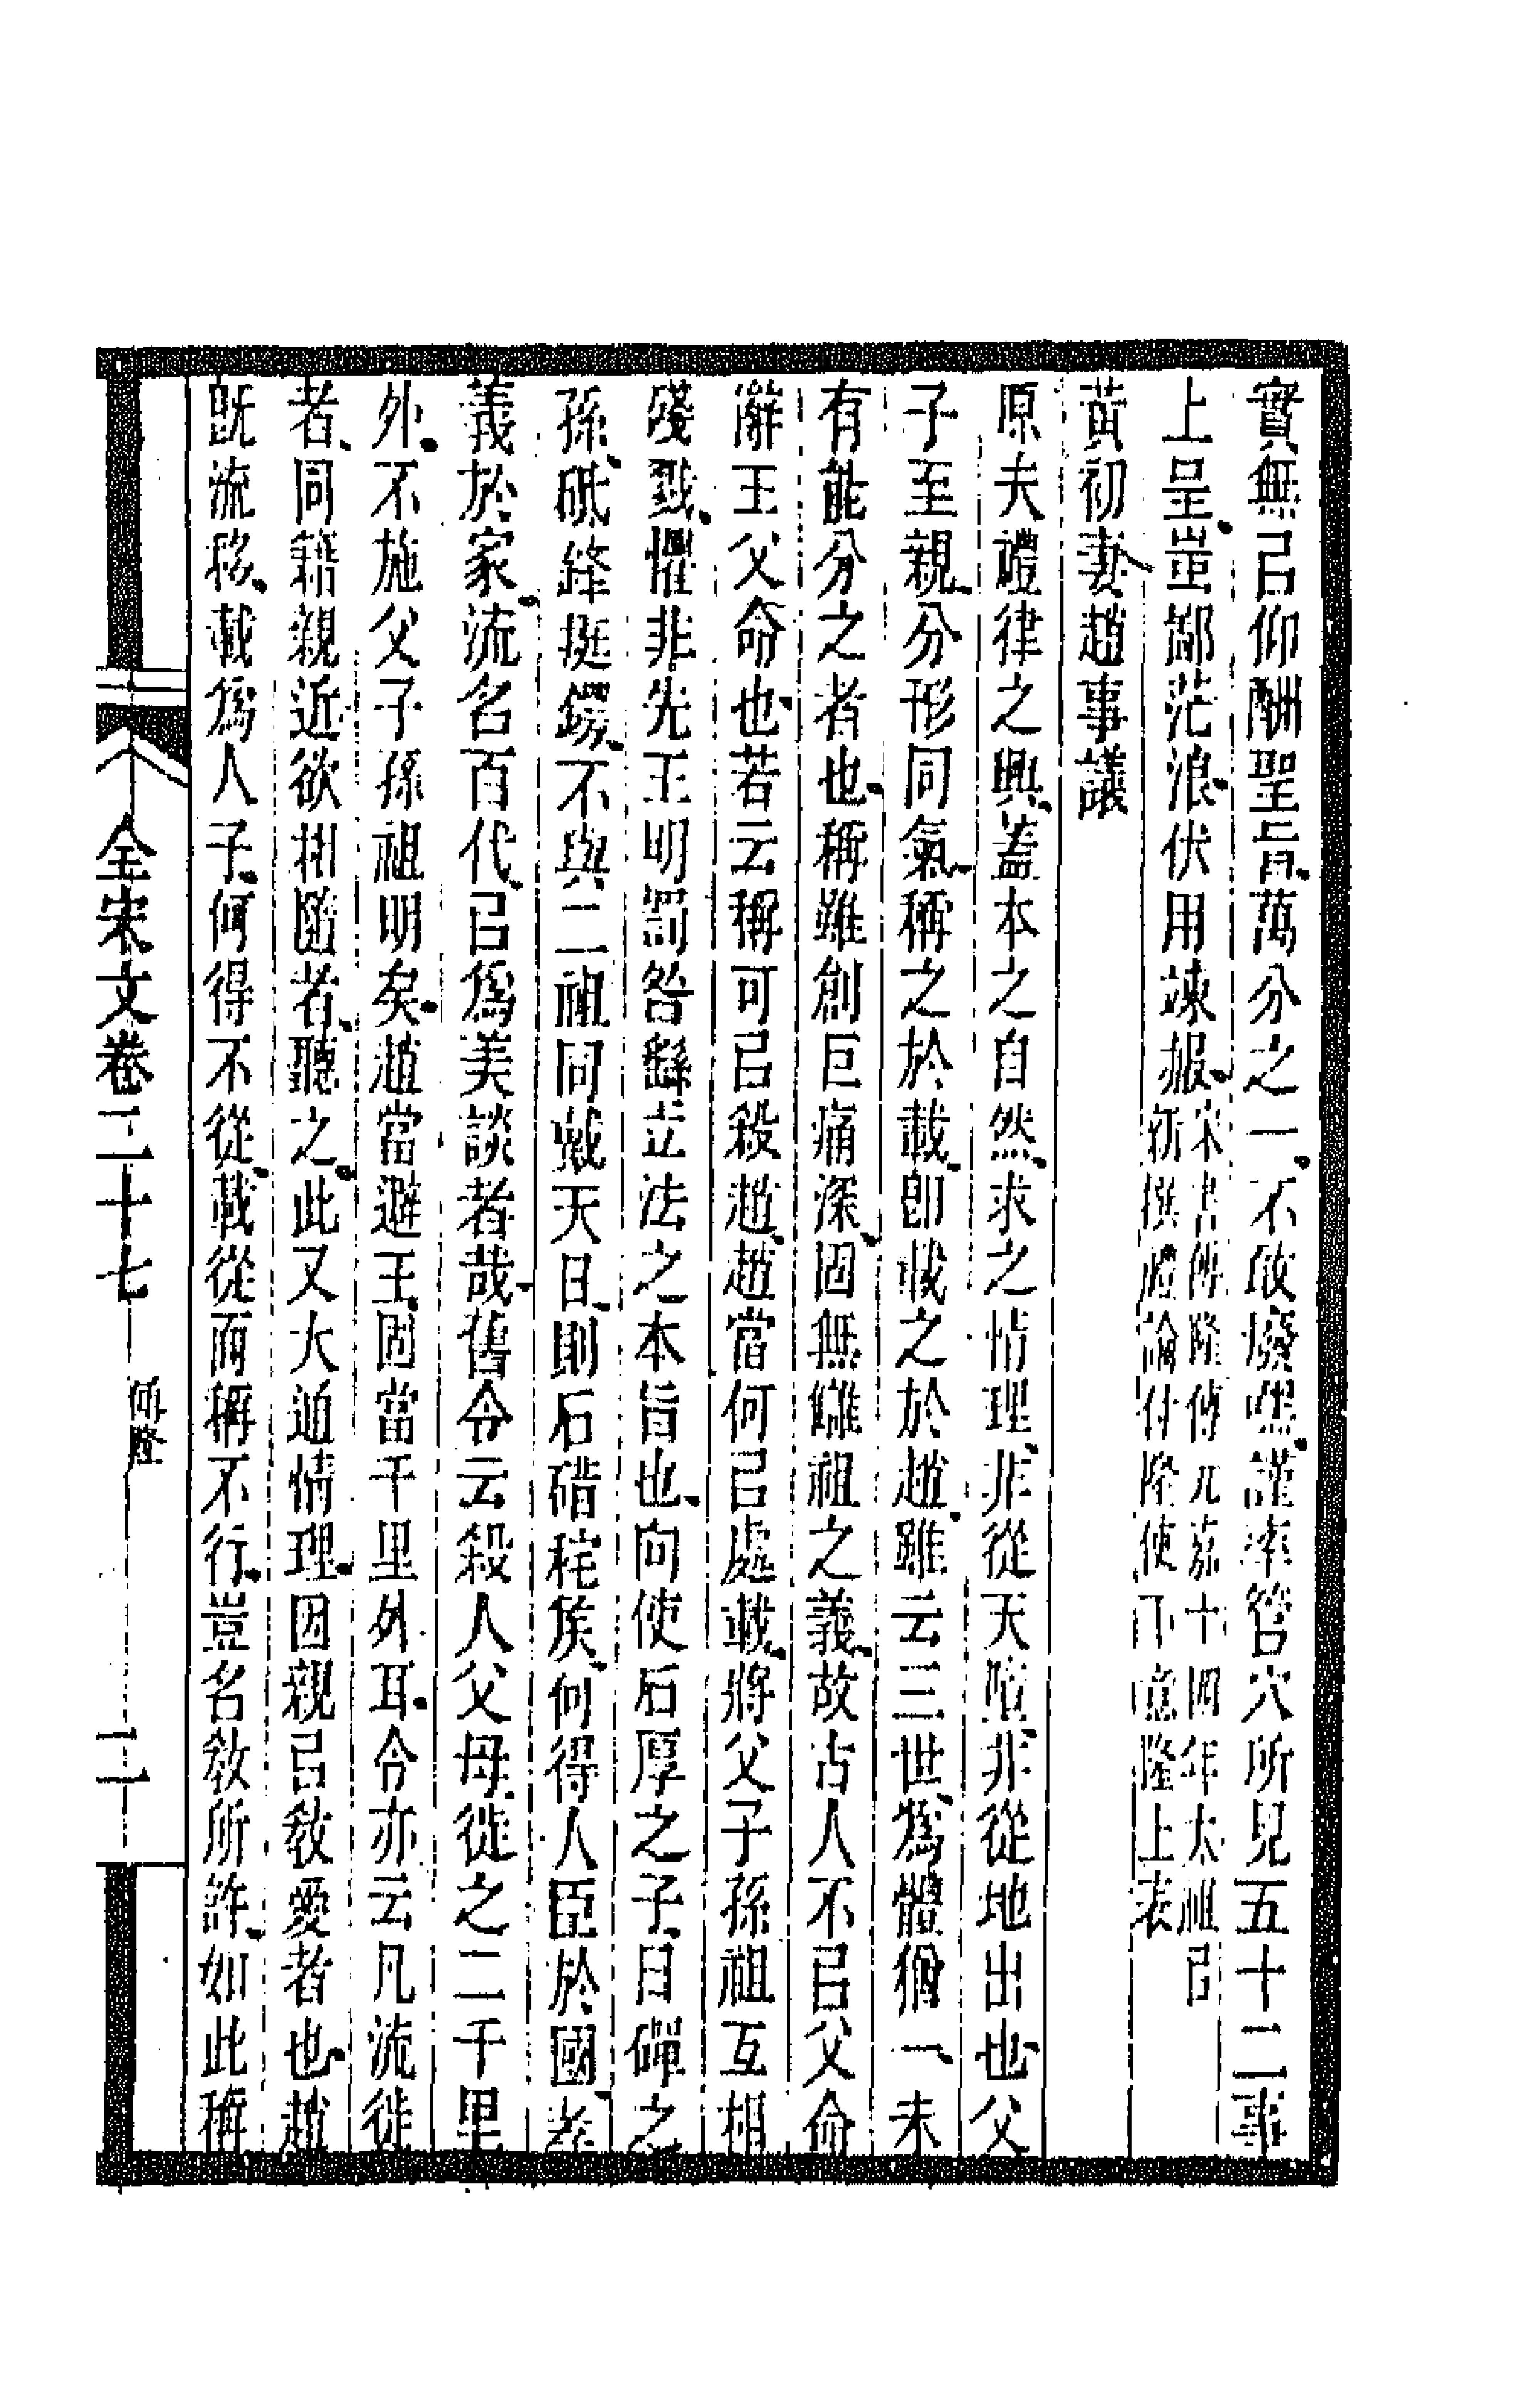 實無㠯仰酬聖旨萬分之一不敢廢嘿謹率管穴所見五十二事
上呈蚩鄙茫浪伏用竦赧宋書傅隆傳元嘉十四年太祖㠯
新撰禮論付隆使下意隆上表
黃初妻趙事議
原夫禮律之興蓋本之自然求之情理非從天墮非從地出也父
子至親分形同氣稱之於載卽載之於趙雖云三世爲體猶一未
有能分之者也稱雖創巨痛深固無讎祖之義故古人不㠯父命
辭王父命也若云稱可㠯殺趙趙當何㠯處載將父子孫祖互相
殘戮懼非先王明罰咎繇立法之本旨也向使石厚之子日磾之
孫砥鋒挺鍔不與二祖同戴天日則石碏秺侯何得人臣於國孝
義於家流名百代㠯爲美談者哉舊令云殺人父母徙之二千里
外不施父子孫祖明矣趙當避王固當千里外耳令亦云凡流徙
者同籍親近欲相隨者聽之此又大通情理因親㠯教愛者也趙
旣流移載爲人子何得不從載從而稱不行豈名教所許如此稱
全宋文卷二十七 傅隆 二